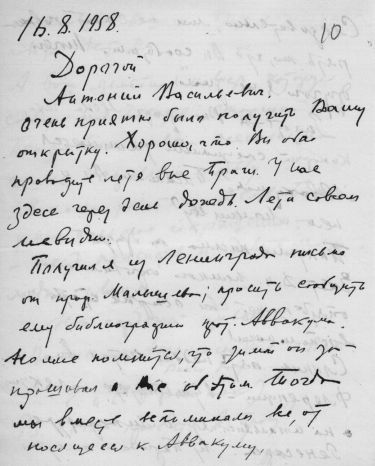 16.8.1958.
10
Дорогой
Антоний Васильевич!
очень приятно было получить Вашу
открытку. Хорошо, что Вы оба
проводите лето вне Праги. У нас
здесь через день дождь. Лета совсем
не видим.
Получил я из Ленинграда письмо
от проф. Малышева; просит сообщить
ему библиографию прот. Аввакума.
Но мне помнится, что зимой он за-
прашивал и Вас об этом. Тогда
мы вместе вспоминали все, от-
носящееся к Аввакуму.